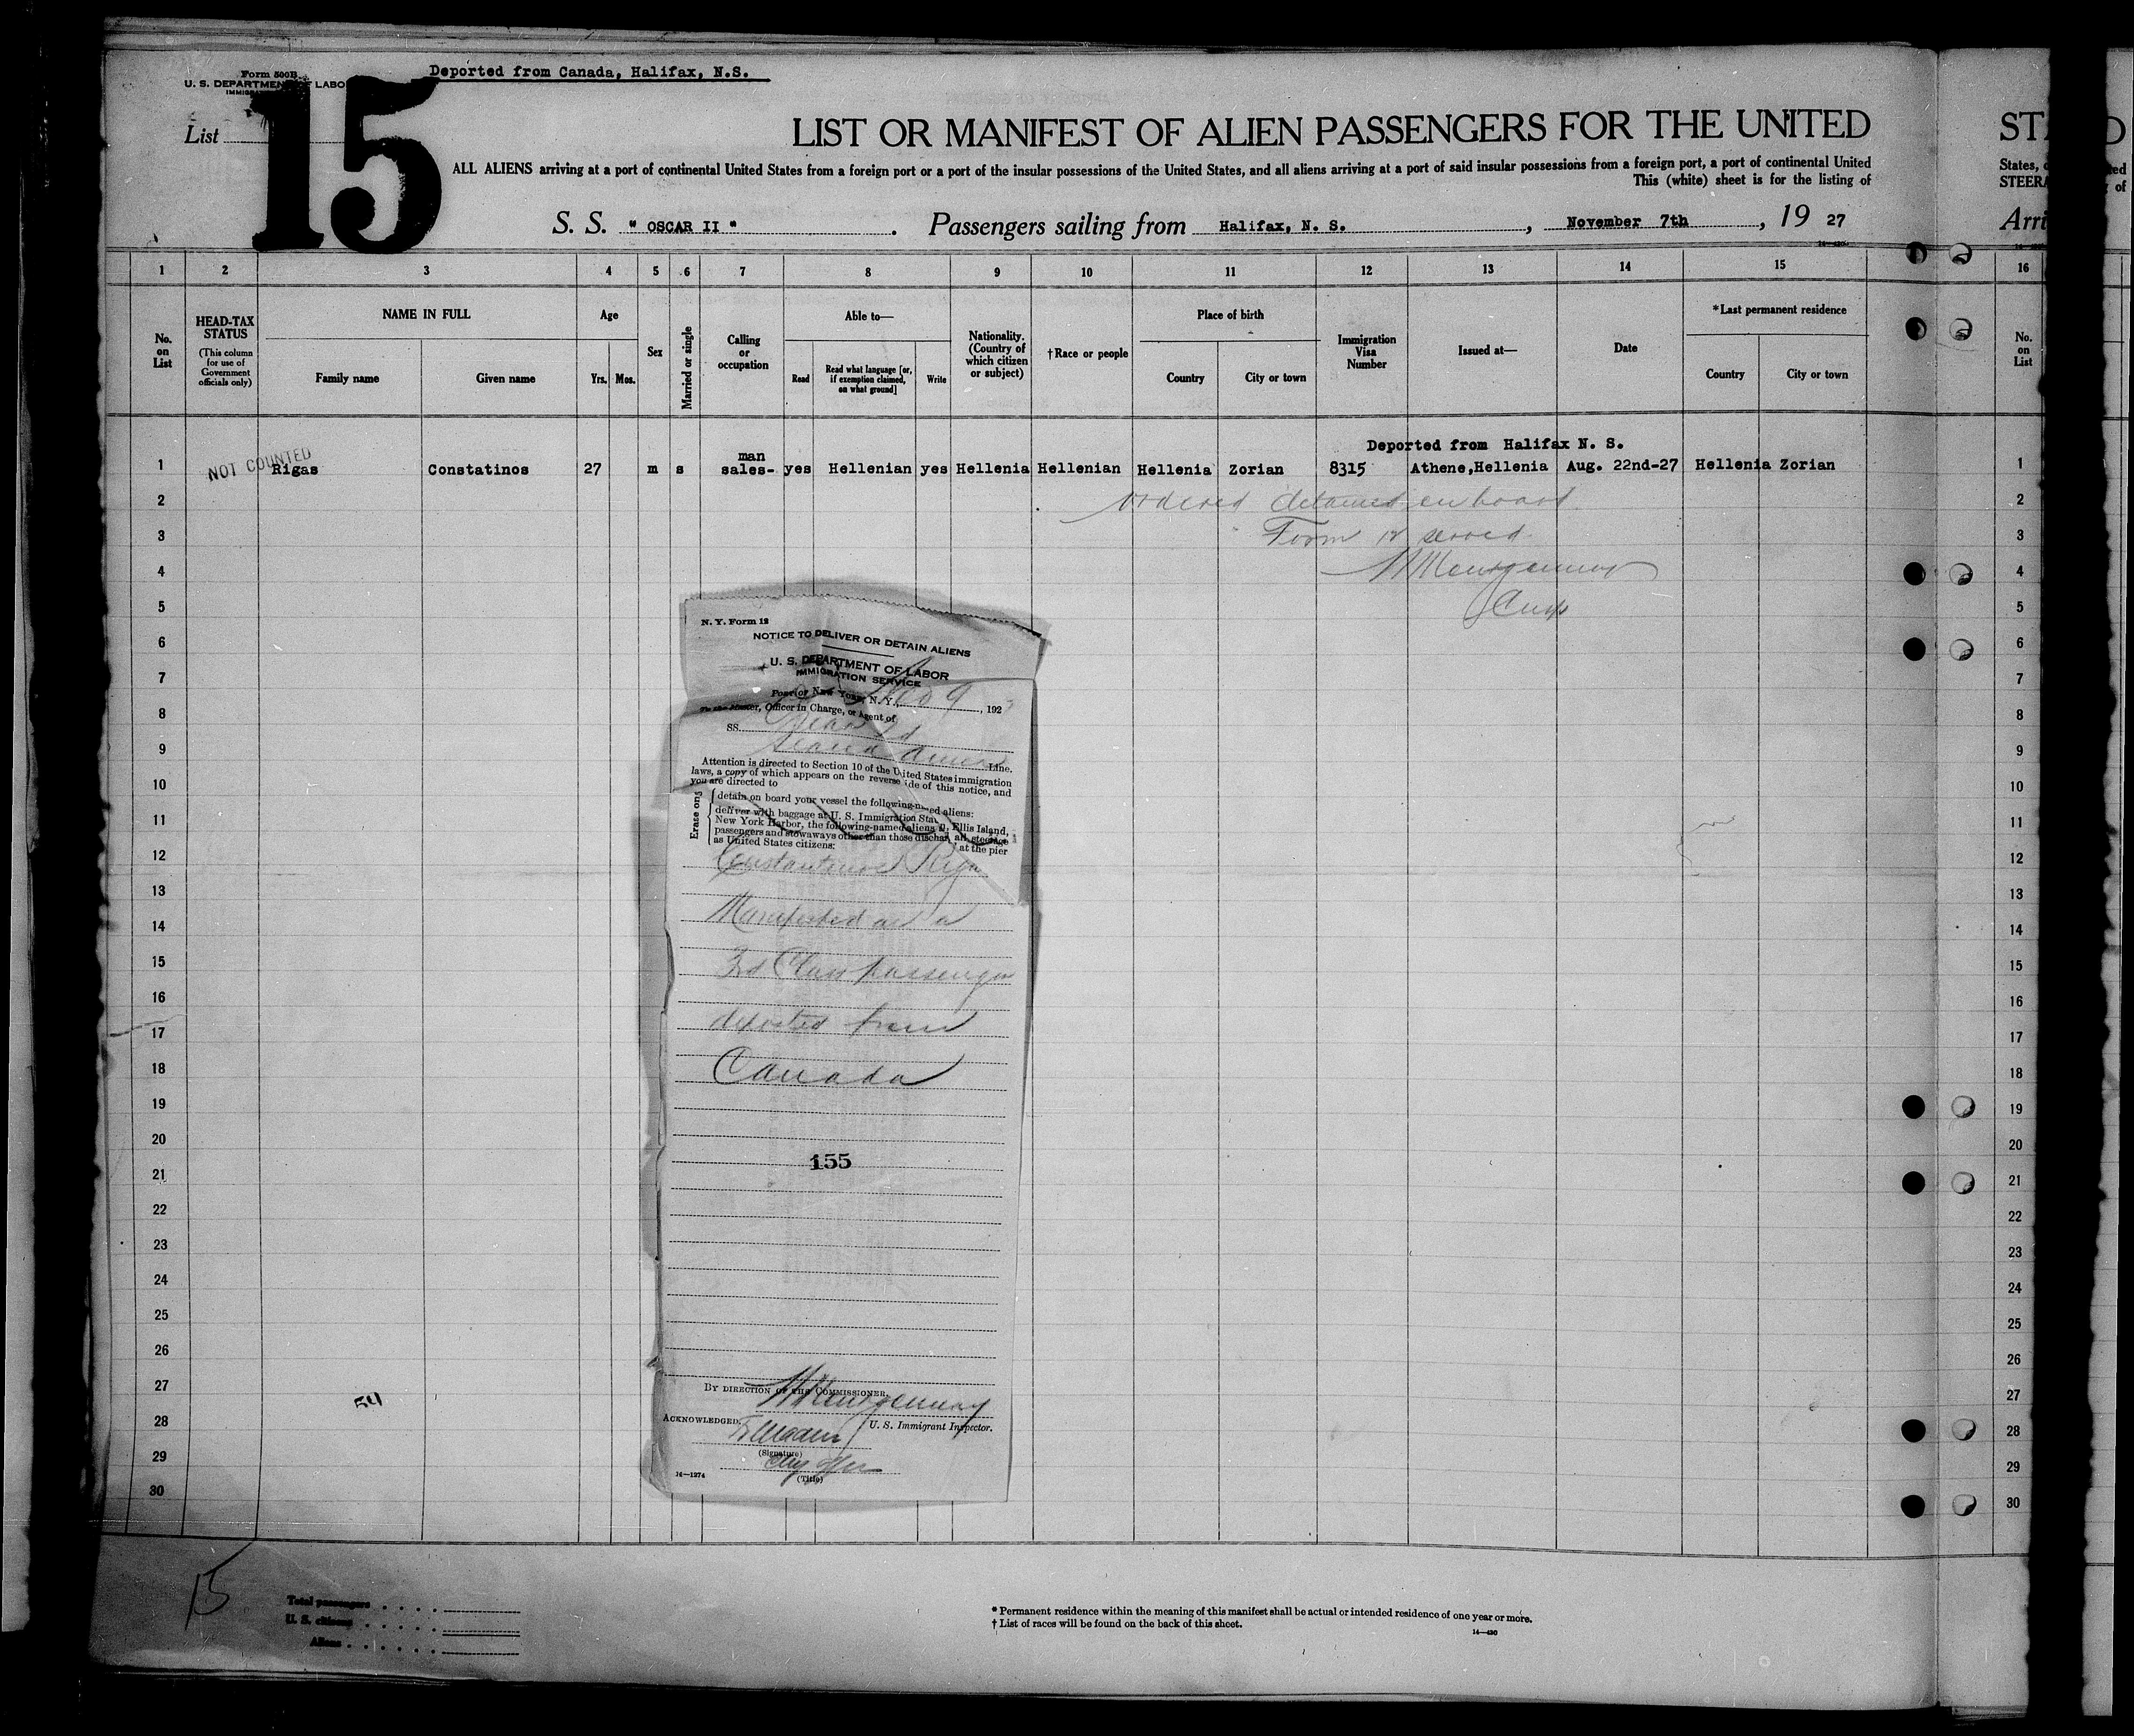 Form 500B
Deported from Canada, Halifax, N.S.
U. S. DEPARTMENT OF LABOR
List
15
LIST OR MANIFEST OF ALIEN PASSENGERS FOR THE UNITED
ALL ALIENS arriving at a port of continental United States from a foreign port or a port of the insular possessions of the United States, and all aliens arriving at a port of said insular possessions from a foreign port, a port of continental United
This (white) sheet is for the listing of
S. S. " OSCAR II " . Passengers sailing from Halifax, N. S. , November 7th , 19 27
1 2 3 4 5 6 7 8 9 10 11 12 13 14 15
No. on List
HEAD-TAX STATUS (This column for use of Government officials only)
NAME IN FULL
Family name Given name
Age
Yrs. Mos.
Sex
Married or single
Calling or occupation
Able to—
Read Read what language [or, if exemption claimed, on what ground] Write
Nationality. (Country of which citizen or subject)
†Race or people
Place of birth
Country City or town
Immigration Visa Number
Issued at—
Date
*Last permanent residence
Country City or town
Deported from Halifax N. S.
1 NOT COUNTED Rigas Constatinos 27 m s sales-man yes Hellenian yes Hellenia Hellenian Hellenia Zorian 8315 Athene,Hellenia Aug. 22nd-27 Hellenia Zorian
2 Ordered detained on board
3 Form 12 served
4 Montgomery
5
6
7
8
9
10
11
12
13
14
15
16
17
18
19
20
21
22
23
24
25
26
27
28
29
30
N. Y. Form 12
NOTICE TO DELIVER OR DETAIN ALIENS
U. S. DEPARTMENT OF LABOR
IMMIGRATION SERVICE
Port of New York, N. Y., 9 , 192
To the Master, Officer in Charge, or Agent of
SS.
Line.
Attention is directed to Section 10 of the United States immigration
laws, a copy of which appears on the reverse side of this notice, and
you are directed to
Erase one
detain on board your vessel the following-named aliens:
deliver with baggage at U. S. Immigration Sta
New York Harbor, the following-named aliens Ellis Island,
passengers and stowaways other than those dischar all steerage
as United States citizens: at the pier
Constantinos Riga
Manifested as a
3rd Class passenger
deported from
Canada
155
BY DIRECTION OF THE COMMISSIONER,
Montgomery
ACKNOWLEDGED: U. S. Immigrant Inspector.
(Signature)
(Title)
14—1274
54
15
Total passengers
U. S. citizens
Aliens
* Permanent residence within the meaning of this manifest shall be actual or intended residence of one year or more.
† List of races will be found on the back of this sheet.
14—430
STA
States,
STEERA
Arri
16
No. on List
1
2
3
4
5
6
7
8
9
10
11
12
13
14
15
16
17
18
19
20
21
22
23
24
25
26
27
28
29
30